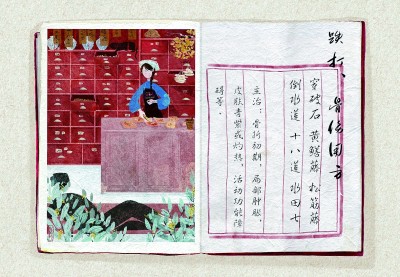 跌打、骨伤用方
穿破石 黄鳝藤 松筋藤
倒水莲 十八莲 水田七
主治：骨折初期 局部肿胀，
皮肤青紫或灼热，活动功能障
碍等。